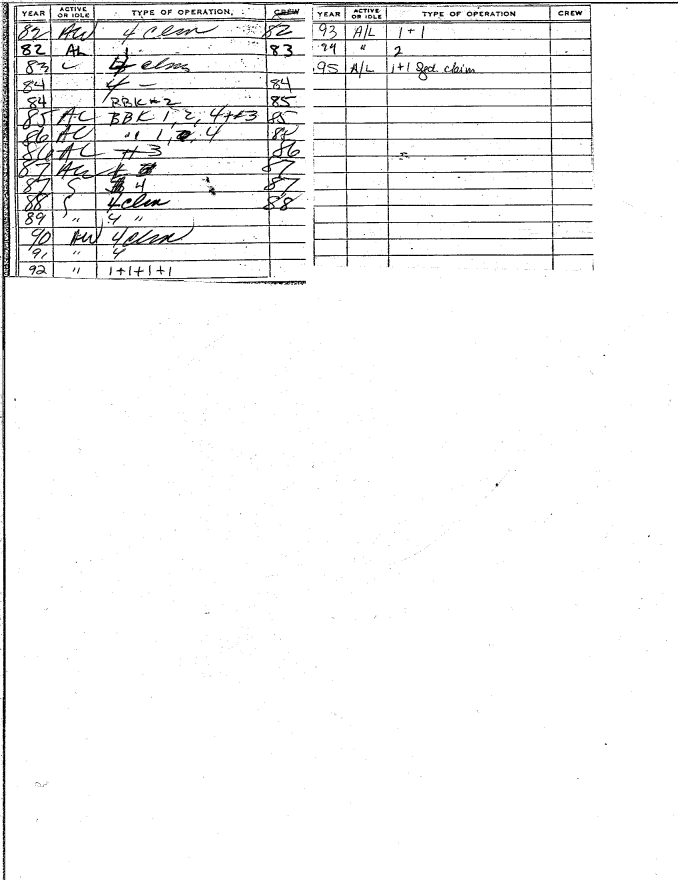 YEAR ACTIVE OR IDLE TYPE OF OPERATION CREW
82 AW 4 Clm 82
82 AL 83
83 4 clms
84 4 - 84
84 BBK #2 85
85 AL BBK 1, 2, 4+#3 85
86 AL " 1, 4
86 AL #3 86
87 AW 87
87 4 87
88 4 clm 88
89 " 4 "
90 AW 4 clm
91 " 4
92 " 1+1+1+1
YEAR ACTIVE OR IDLE TYPE OF OPERATION CREW
93 A/L 1+1
94 " 2
95 A/L 1+1 claim